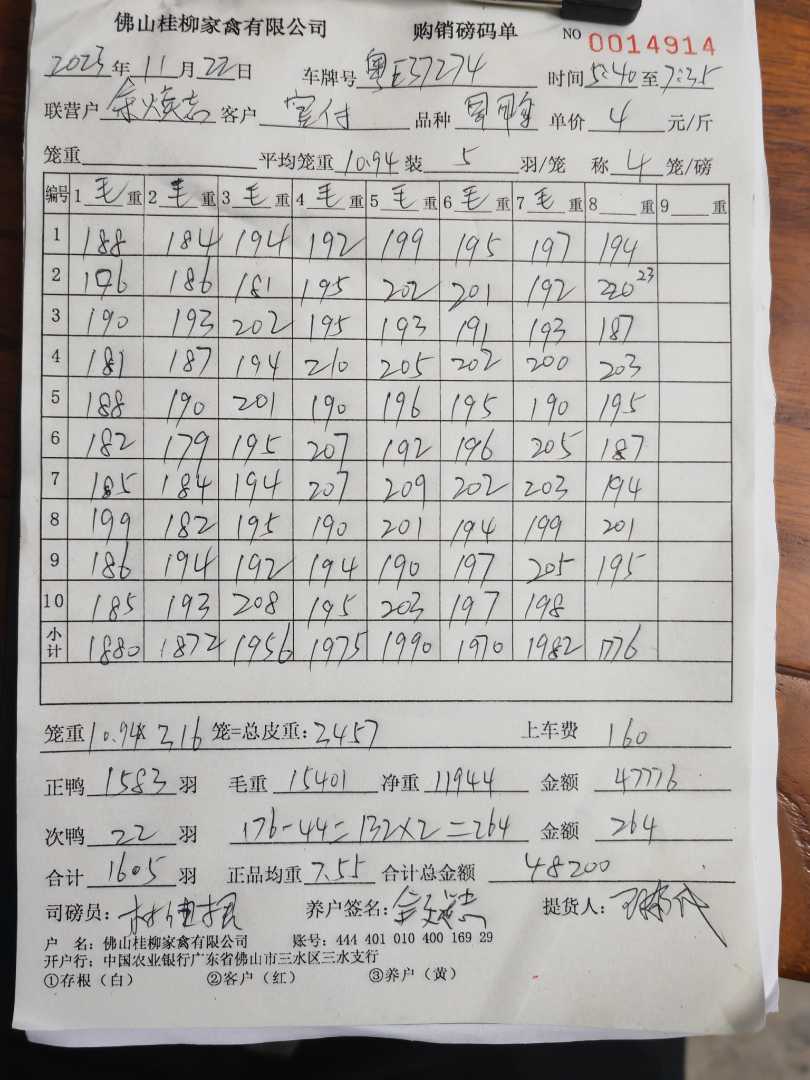 佛山桂柳家禽有限公司 购销磅码单 NO 0014914
2023年11月22日 车牌号 粤E37274 时间 5:40 至 7:35
联营户 客户 品种 单价 4 元/斤
笼重 平均笼重 10.94 装 5 羽/笼 称 4 笼/磅
编号 1 毛 重 2 毛 重 3 毛 重 4 毛 重 5 毛 重 6 毛 重 7 毛 重 8 重 9 重
1 188 184 194 192 199 195 197 194
2 176 186 181 195 202 201 192 220 23
3 190 193 202 195 193 191 193 187
4 181 187 194 210 205 202 200 203
5 188 190 201 190 196 195 190 195
6 182 179 195 207 192 196 205 187
7 185 184 194 207 209 202 203 194
8 199 182 195 190 201 194 199 201
9 186 194 192 194 190 197 205 195
10 185 193 208 195 203 197 198
小计 1880 1872 1956 1975 1990 1970 1982 1776
笼重 10.94× 316 笼=总皮重: 3457 上车费 160
正鸭 1583 羽 毛重 15401 净重 11944 金额 47776
次鸭 22 羽 176-44=132×2=264 金额 264
合计 1605 羽 正品均重 7.55 合计总金额 48200
司磅员: 养户签名: 提货人:
户 名: 佛山桂柳家禽有限公司 账号: 444 401 010 400 169 29
开户行: 中国农业银行广东省佛山市三水区三水支行
①存根（白） ②客户（红） ③养户（黄）